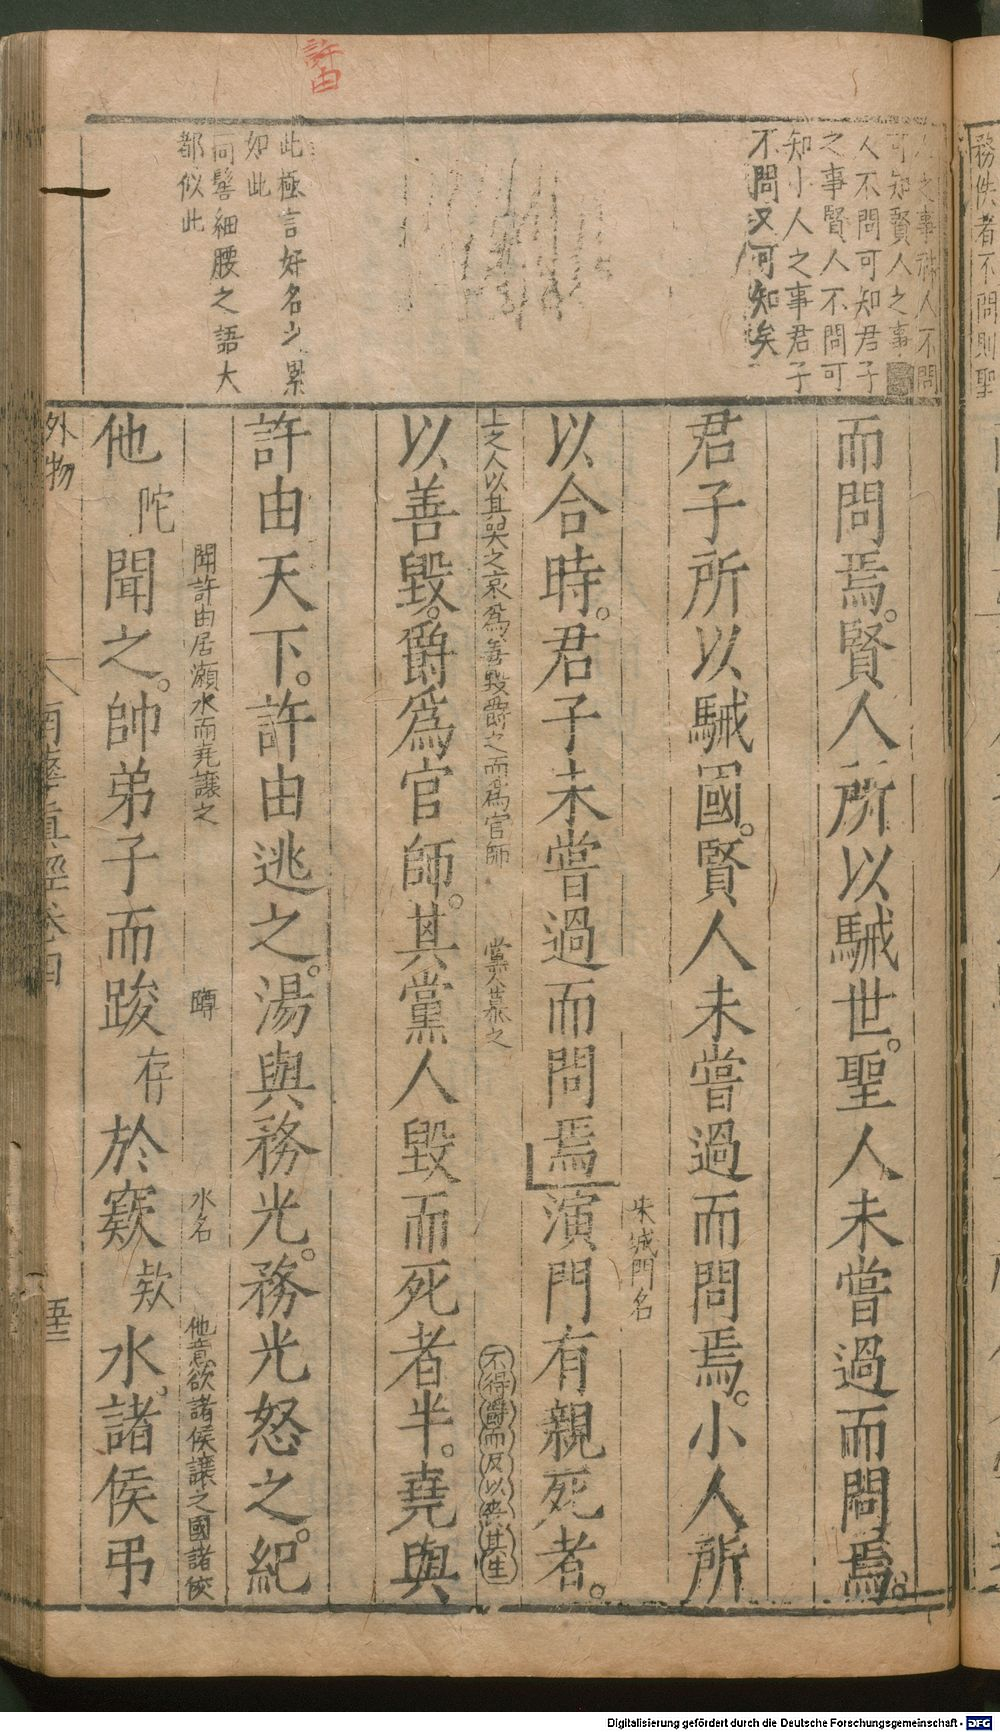 許由
務佚者不問則聖
人之事神人不問
可知賢人之事
人不問可知君子
之事賢人不問可
知小人之事君子
不問又可知矣
此極言好名之累
如此
同髻細腰之語大
都似此
而問焉。賢人所以駴世。聖人未嘗過而問焉。
君子所以駴國。賢人未嘗過而問焉。小人所
宋城門名
以合時。君子未嘗過而問焉演門有親死者。
上之人以其哭之哀爲善毀爵之而爲官師 黨人慕之 不得爵而反以喪其生
以善毀。爵爲官師。其黨人毀而死者半。堯與
許由天下。許由逃之。湯與務光。務光怒之。紀
聞許由居瀕水而堯讓之 蹲 水名 他意欲諸侯讓之國諸侯
他陀聞之。帥弟子而踆存於窾欵水。諸侯弔
外物
南華眞經卷四
五十二
Digitalisierung gefördert durch die Deutsche Forschungsgemeinschaft - DFG